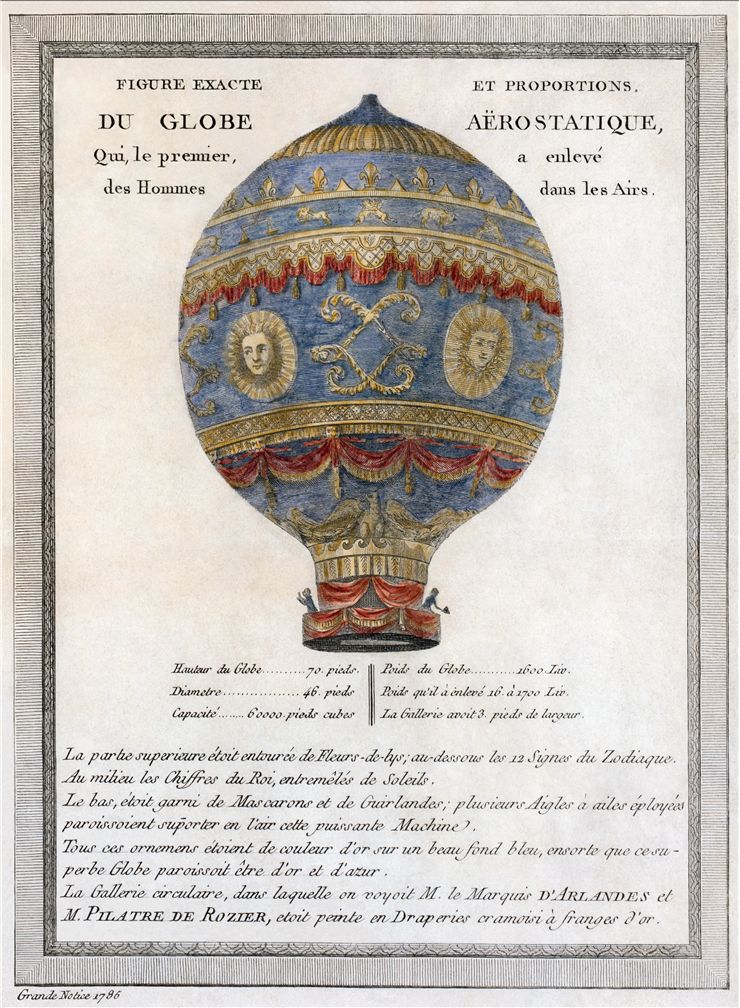 FIGURE EXACTE ET PROPORTIONS.
DU GLOBE AËROSTATIQUE,
Qui, le premier, a enlevé
des Hommes dans les Airs.
Hauteur du Globe..........70. pieds.
Diametre..................46. pieds
Capacité........60000. pieds cubes
Poids du Globe..........1600. Liv.
Poids qu'il à ènlevé 16. à 1700 Liv.
La Gallerie avoit 3. pieds de largeur.
La partie superieure étoit entourée de Fleurs-de-lys; au-dessous les 12 Signes du Zodiaque.
Au milieu les Chiffres du Roi, entremêlés de Soleils.
Le bas, étoit garni de Mascarons et de Guirlandes; plusieurs Aigles à ailes éployées
paroissoient suporter en l'air cette puissante Machine.
Tous ces ornemens étoient de couleur d'or sur un beau fond bleu, ensorte que ce su-
perbe Globe paroissoit être d'or et d'azur.
La Gallerie circulaire, dans laquelle on voyoit M. le Marquis D'ARLANDES et
M. PILATRE DE ROZIER, etoit peinte en Draperies cramoisi à franges d'or.
Grande Notice 1786